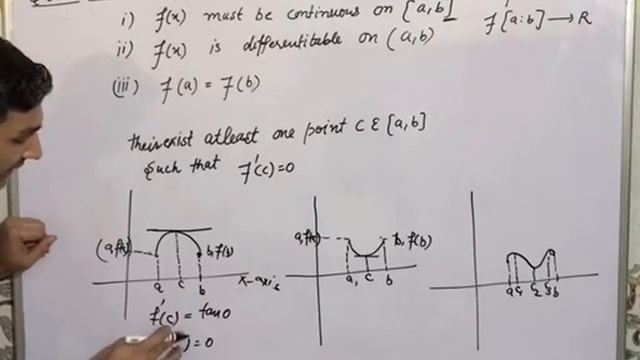 i) f(x) must be continuous on [a,b]
f[a:b] → R
ii) f(x) is differentitable on (a,b)
(iii) f(a) = f(b)
their exist atleast one point C ε [a,b]
Such that f'(c)=0
(a,f(a) b,f(b)
a c b x-axis
f'(c) = tan 0
)=0
a,f(a) b,f(b)
a, c b
a c₁ c₂ c₃ b